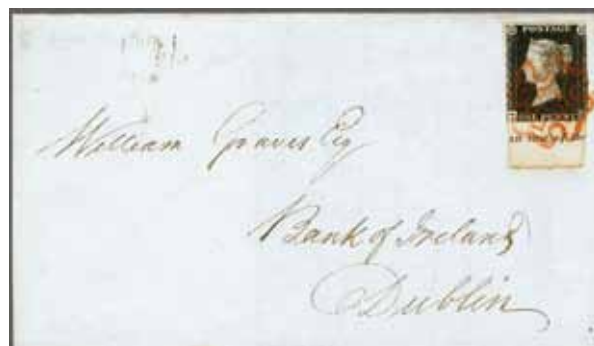 POSTAGE
ONE PENNY
William Graves Esq
Bank of Ireland
Dublin